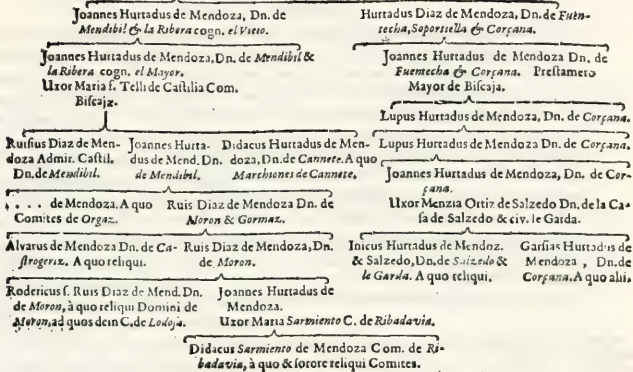 Joannes Hurtadus de Mendoza, Dn. de
Mendibil & la Ribera cogn. el Viejo.
Hurtadus Diaz de Mendoza, Dn. de Fuen-
techa, Soportiella & Corçana.
Joannes Hurtadus de Mendoza, Dn. de Mendibil &
la Ribera cogn. el Mayor.
Uxor Maria f. Telli de Castilia Com.
Biscajæ.
Joannes Hurtadus de Mendoza Dn. de
Fuemecha & Corçana. Prestamero
Mayor de Biscaja.
Lupus Hurtadus de Mendoza, Dn. de Corçana.
Ruisius Diaz de Men-
doza Admir. Castil.
Dn. de Mendibil.
Joannes Hurta-
dus de Mend. Dn.
de Mendibil.
Didacus Hurtadus de Men-
doza, Dn. de Cannete. A quo
Marchiones de Cannete.
Lupus Hurtadus de Mendoza Dn. de Corçana.
Joannes Hurtadus de Mendoza, Dn. de Cor-
çana.
Uxor Menzia Ortiz de Salzedo Dn. de la Ca-
sa de Salzedo & civ. le Garda.
. . . . de Mendoza. A quo
Comites de Orgaz.
Ruis Diaz de Mendoza Dn. de
Moron & Gormaz.
Alvarus de Mendoza Dn. de Ca-
strogeriz. A quo reliqui.
Ruis Diaz de Mendoza, Dn.
de Moron.
Inicus Hurtadus de Mendoz.
& Salzedo, Dn. de Salzedo &
le Garda. A quo reliqui.
Garsias Hurtadus de
Mendoza, Dn. de
Corçana. A quo alii.
Rodericus f. Ruis Diaz de Mend. Dn.
de Moron, à quo reliqui Domini de
Moron, ad quos dein C. de Lodoja.
Joannes Hurtadus de
Mendoza.
Uxor Maria Sarmiento C. de Ribadavia.
Didacus Sarmiento de Mendoza Com. de Ri-
badavia, à quo & sorore reliqui Comites.